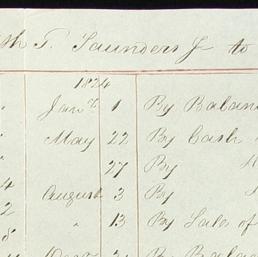 th T. Saunders Jr to
1824
Jany 1 By Balan
May 22 By Cash
27 By
4 August 3 By
2 " 13 By Sales of
8